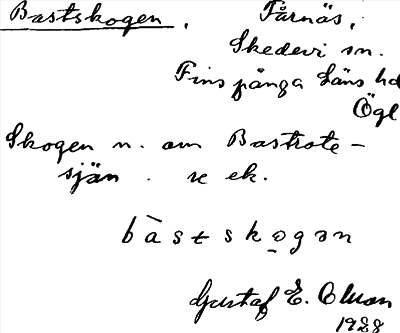 Bastskogen, Tårnäs,
Skedevi sn.
Finspånga läns hd
Ögl
Skogen n. om Bastrote-
sjön. se ek.
bàstskogən
Gustaf E. Olson
1928